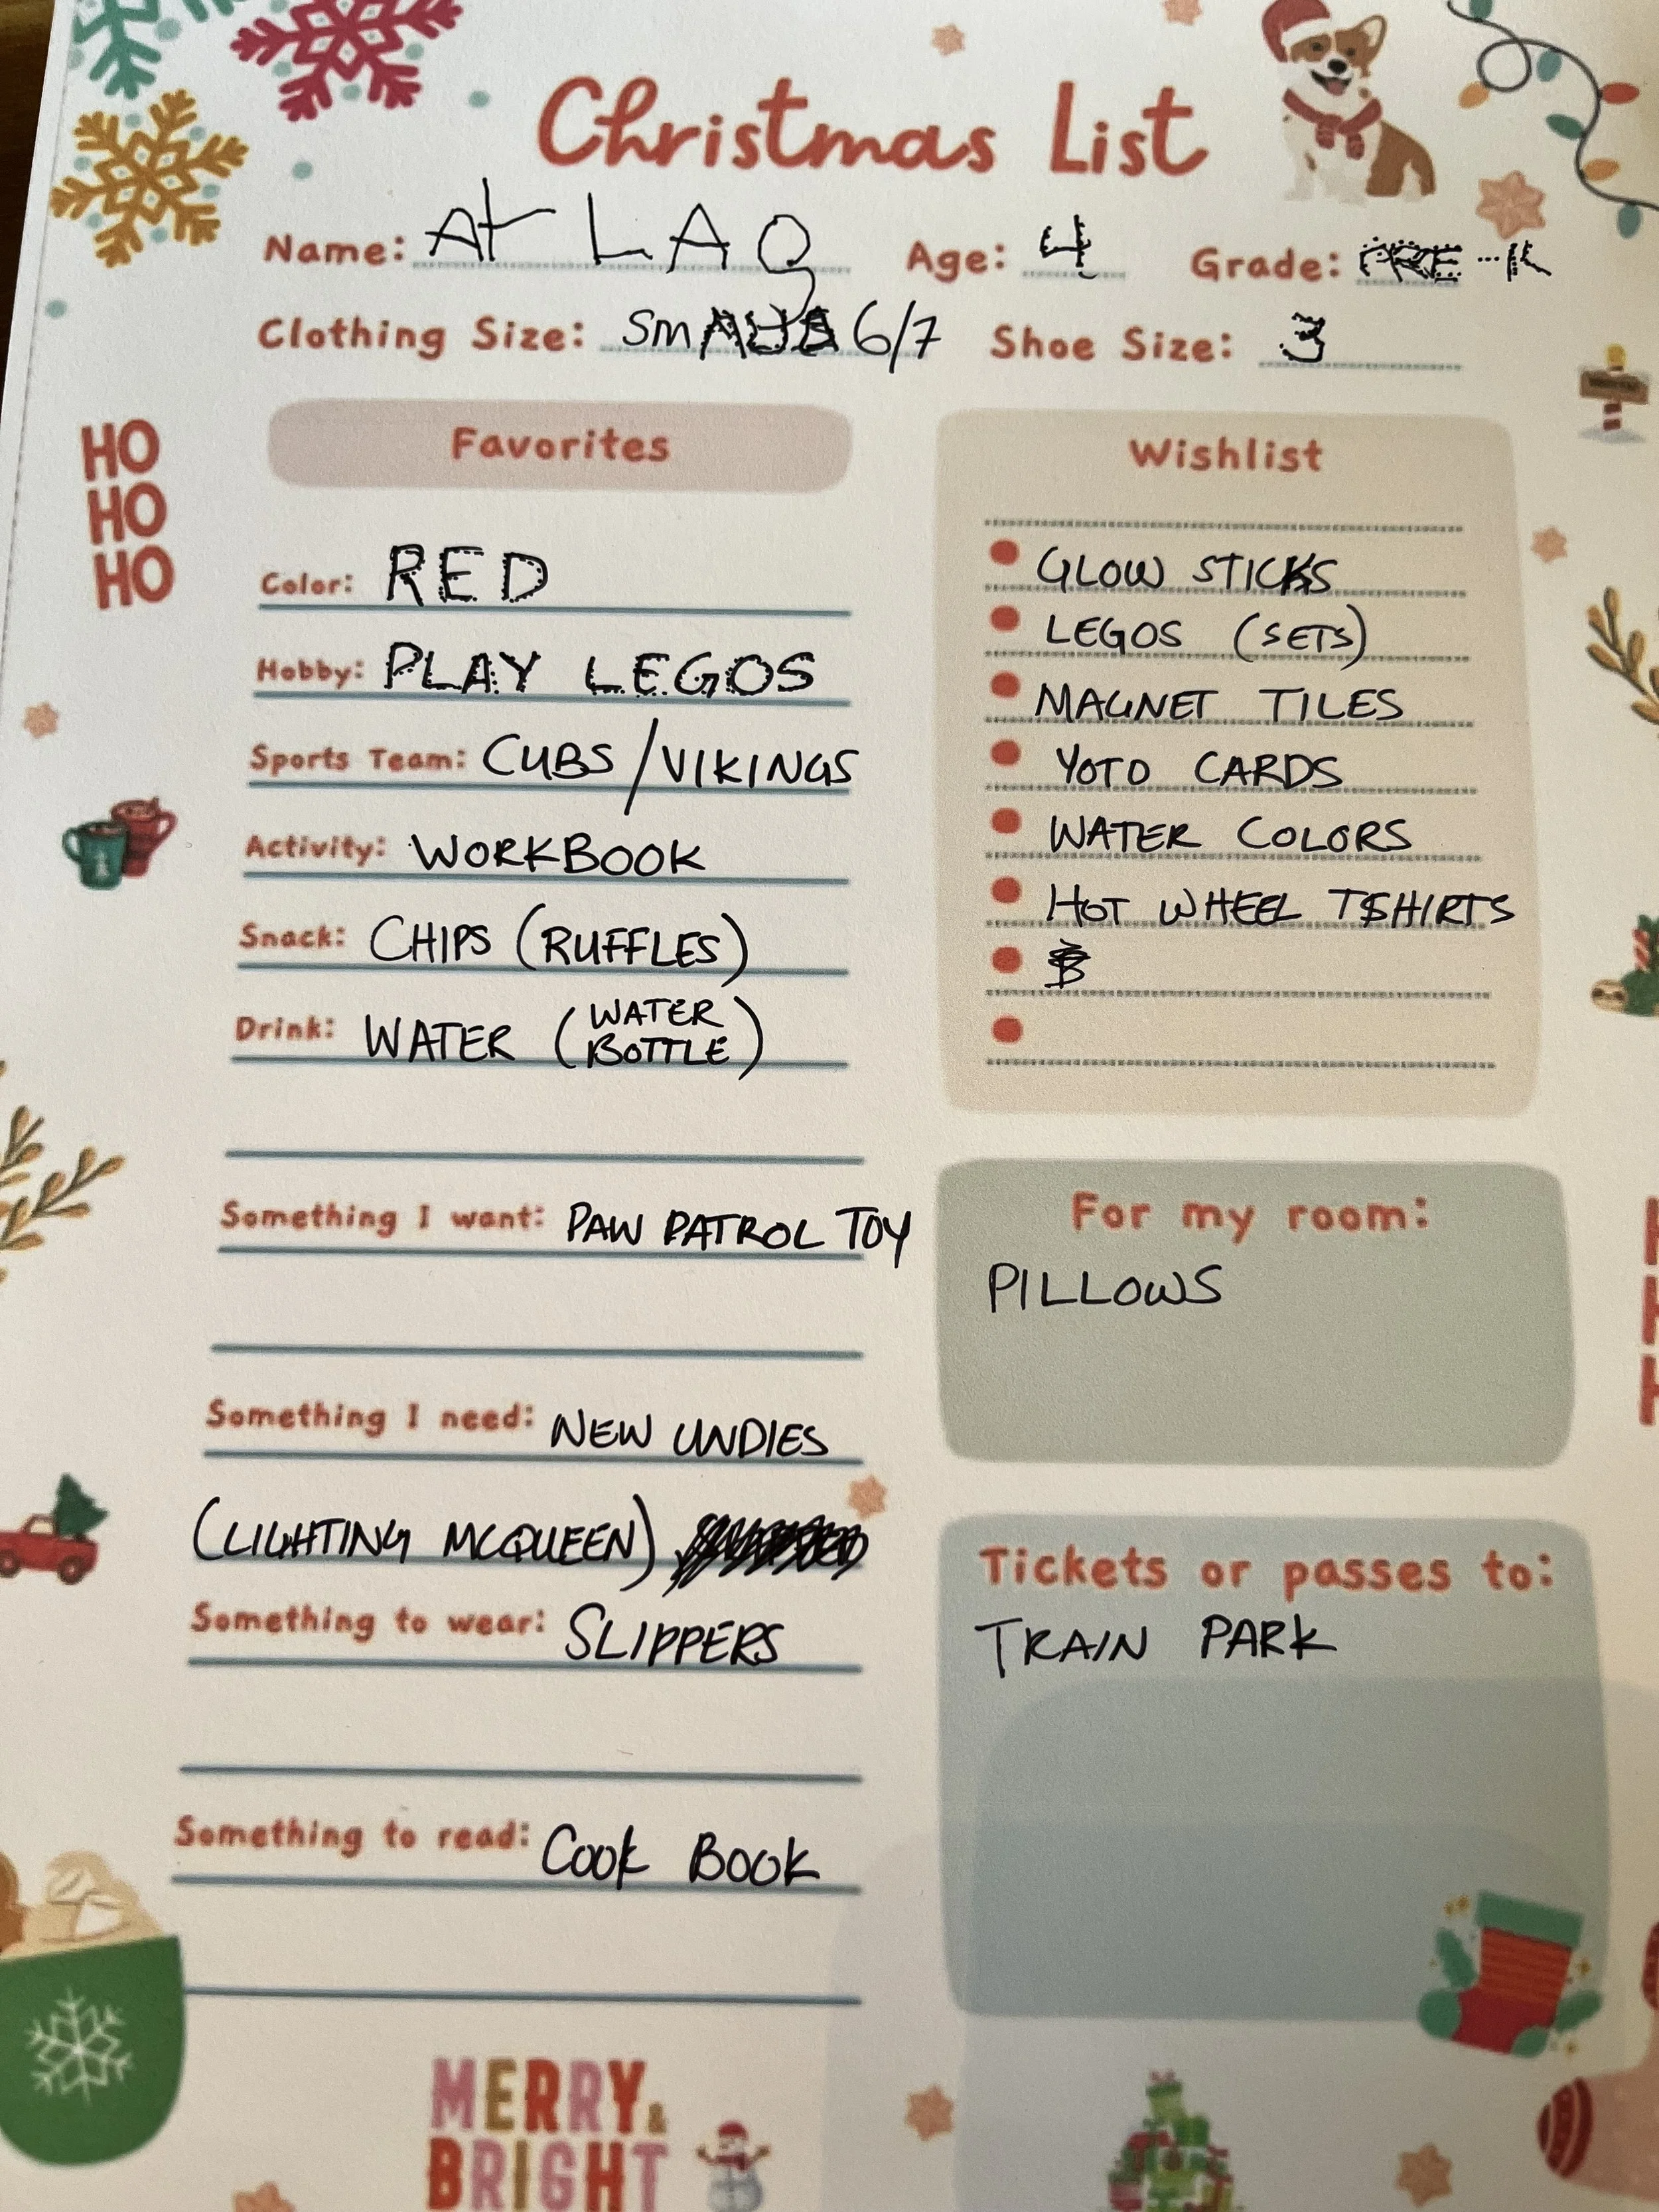 Christmas List
Name: At LAS Age: 4 Grade: PRE-K
Clothing Size: SMALL 6/7 Shoe Size: 3
HO
HO
HO
Favorites
Color: RED
Hobby: PLAY LEGOS
Sports Team: CUBS/VIKINGS
Activity: WORKBOOK
Snack: CHIPS (RUFFLES)
Drink: WATER (WATER BOTTLE)
Something I want: PAW PATROL TOY
Something I need: NEW UNDIES
(LIGHTING MCQUEEN)
Something to wear: SLIPPERS
Something to read: COOK BOOK
Wishlist
GLOW STICKS
LEGOS (SETS)
MAGNET TILES
YOTO CARDS
WATER COLORS
HOT WHEEL TSHIRTS
For my room:
PILLOWS
Tickets or passes to:
TRAIN PARK
MERRY &
BRIGHT